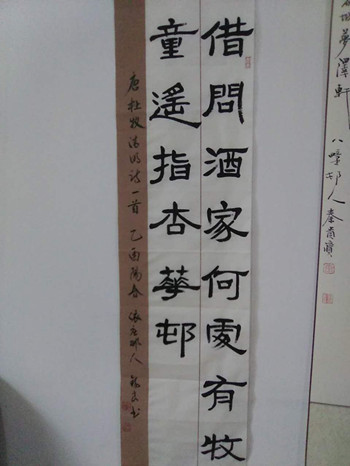 借問酒家何處有牧
童遙指杏華邨
唐杜牧清明詩一首 乙酉陽春
夢澤軒
八
邨人秦